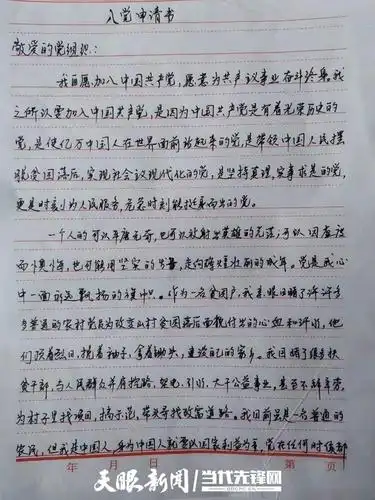 入党申请书
敬爱的党组织:
我自愿加入中国共产党,愿意为共产主义事业奋斗终身。我
之所以要加入中国共产党,是因为中国共产党是有着光荣历史的
党,是使亿万中国人在世界面前站起来的党,是带领中国人民摆
脱贫困落后,实现社会主义现代化的党,是坚持真理,实事求是的党,
更是时刻为人民服务,危急时刻能挺身而出的党。
一个人的可以平庸无奇,也可以放射出英雄的光芒,可以因虚度
而懊悔,也可以用坚实的步,走向辉煌壮丽的成年。党是我心
中一面永远飘扬的旗帜。作为一名贫困户,我亲眼目睹了许许多
多普通的农村党员为改变山村贫困落后面貌付出的心血和汗水,他
们顶着烈日,挽着袖子,拿着锄头,建设自己的家乡。我目睹了很多扶
贫干部,与人民群众并肩挖路,架电,引水,大干公益事业,甚至不辞辛劳,
为村子里找项目,搞示范,带头寻找致富道路。我目前只是一名普通的
农民,但我是中国人,身为中国人就要以国家利益为重,党在任何时候都
年 月 日 第 页
天眼新闻 / 当代先锋网